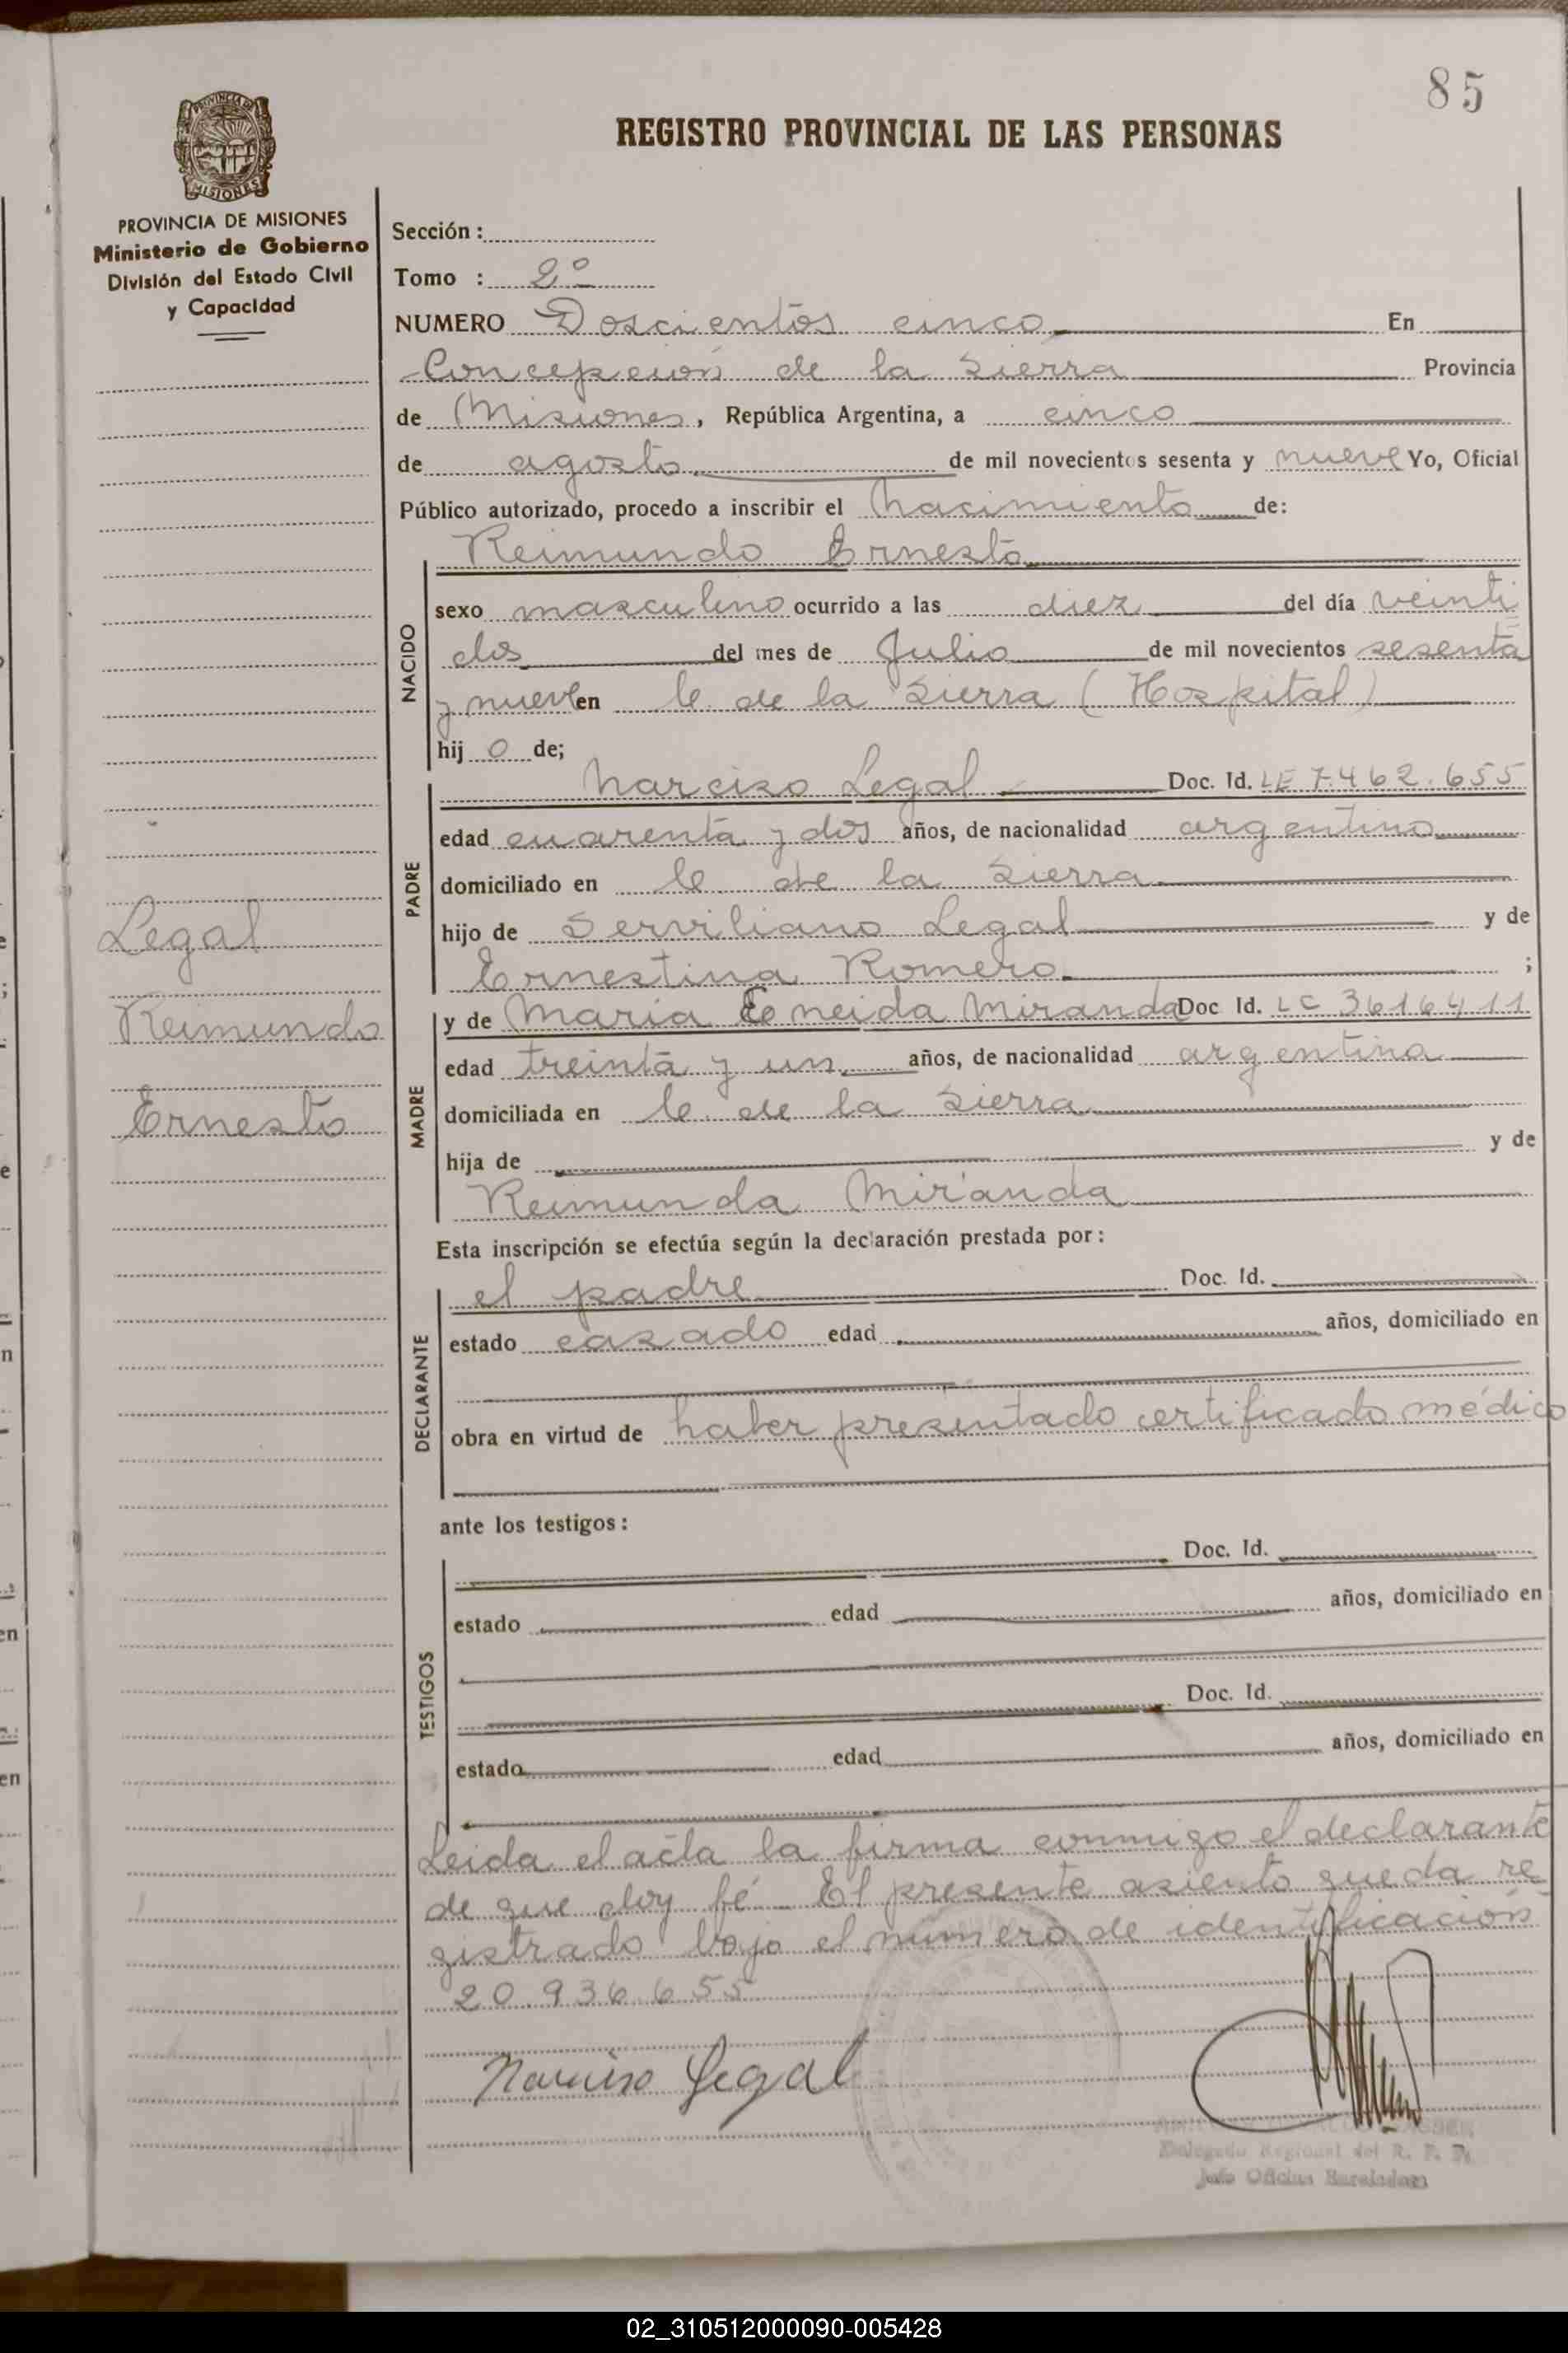 85
REGISTRO PROVINCIAL DE LAS PERSONAS
PROVINCIA DE MISIONES
Ministerio de Gobierno
División del Estado Civil
y Capacidad
Legal
Reimundo
Ernesto
Sección :
Tomo : 2º
NUMERO Doscientos cinco En
Concepción de la Sierra Provincia
de Misiones, República Argentina, a cinco
de agosto de mil novecientos sesenta y nueve Yo, Oficial
Público autorizado, procedo a inscribir el Nacimiento de:
Reimundo Ernesto
NACIDO
sexo masculino ocurrido a las diez del día veinti
dos del mes de Julio de mil novecientos sesenta
y nueve en C. de la Sierra (Hospital)
hij o de;
PADRE
Narciso Legal Doc. Id. LE 7.462.655
edad cuarenta y dos años, de nacionalidad argentino
domiciliado en C. de la Sierra
hijo de Serviliano Legal y de
Ernestina Romero ;
MADRE
y de Maria Eneida Miranda Doc Id. LC 3616411
edad treinta y un años, de nacionalidad argentina
domiciliada en C. de la Sierra
hija de y de
Reimunda Miranda
Esta inscripción se efectúa según la declaración prestada por :
DECLARANTE
el padre Doc. Id.
estado casado edad años, domiciliado en
obra en virtud de haber presentado certificado médico
ante los testigos :
TESTIGOS
Doc. Id.
estado edad años, domiciliado en
Doc. Id.
estado edad años, domiciliado en
Leida el acta la firma conmigo el declarante
de que doy fé. El presente asiento queda re
gistrado bajo el numero de identificación
20.936.655
Narciso Legal
Delegado Regional del R. P. P.
Jefe Oficina
02_310512000090-005428